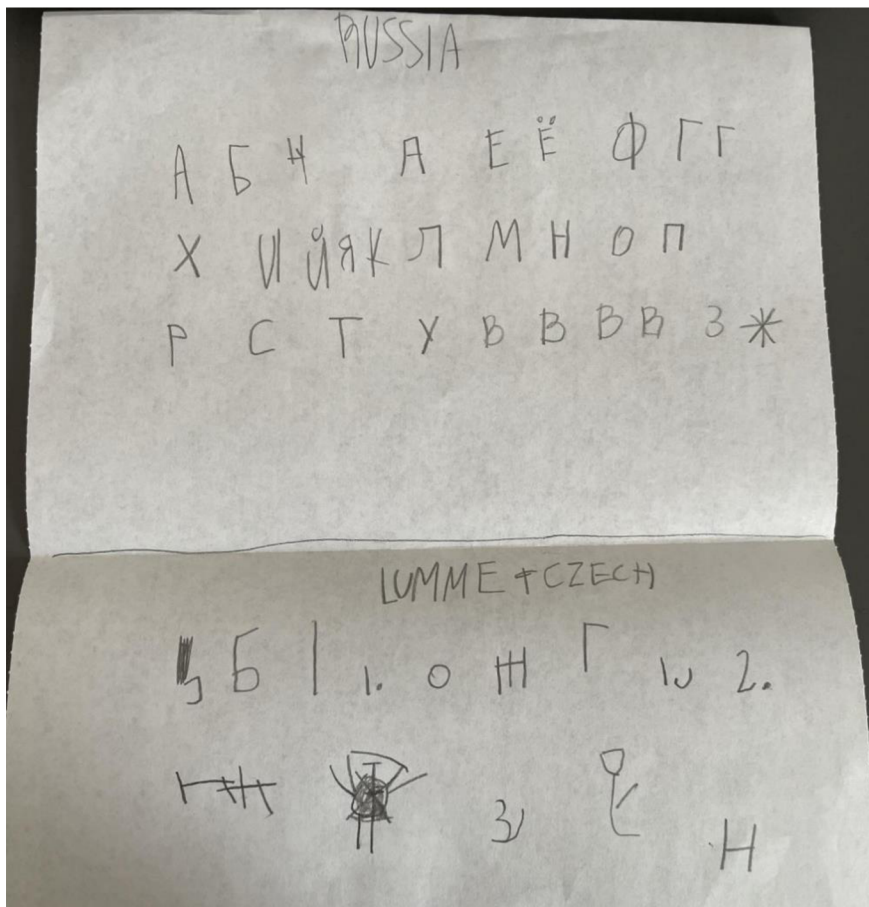 RUSSIA
А Б Н А Е Ё Ф Г Г
Х И Й Я К Л М Н О П
Р С Т У В В В В З Ж
LUMME + CZECH
Б | 1. О Ж Г 2.
З
Н